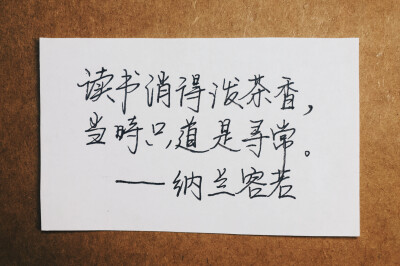 读书消得泼茶香，
当時只道是寻常。
——纳兰容若